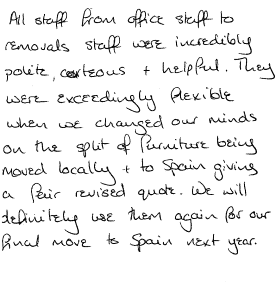 All staff from office staff to
removals staff were incredibly
polite, courteous + helpful. They
were exceedingly flexible
when we changed our minds
on the split of furniture being
moved locally + to Spain giving
a fair revised quote. We will
definitely use them again for our
final move to Spain next year.